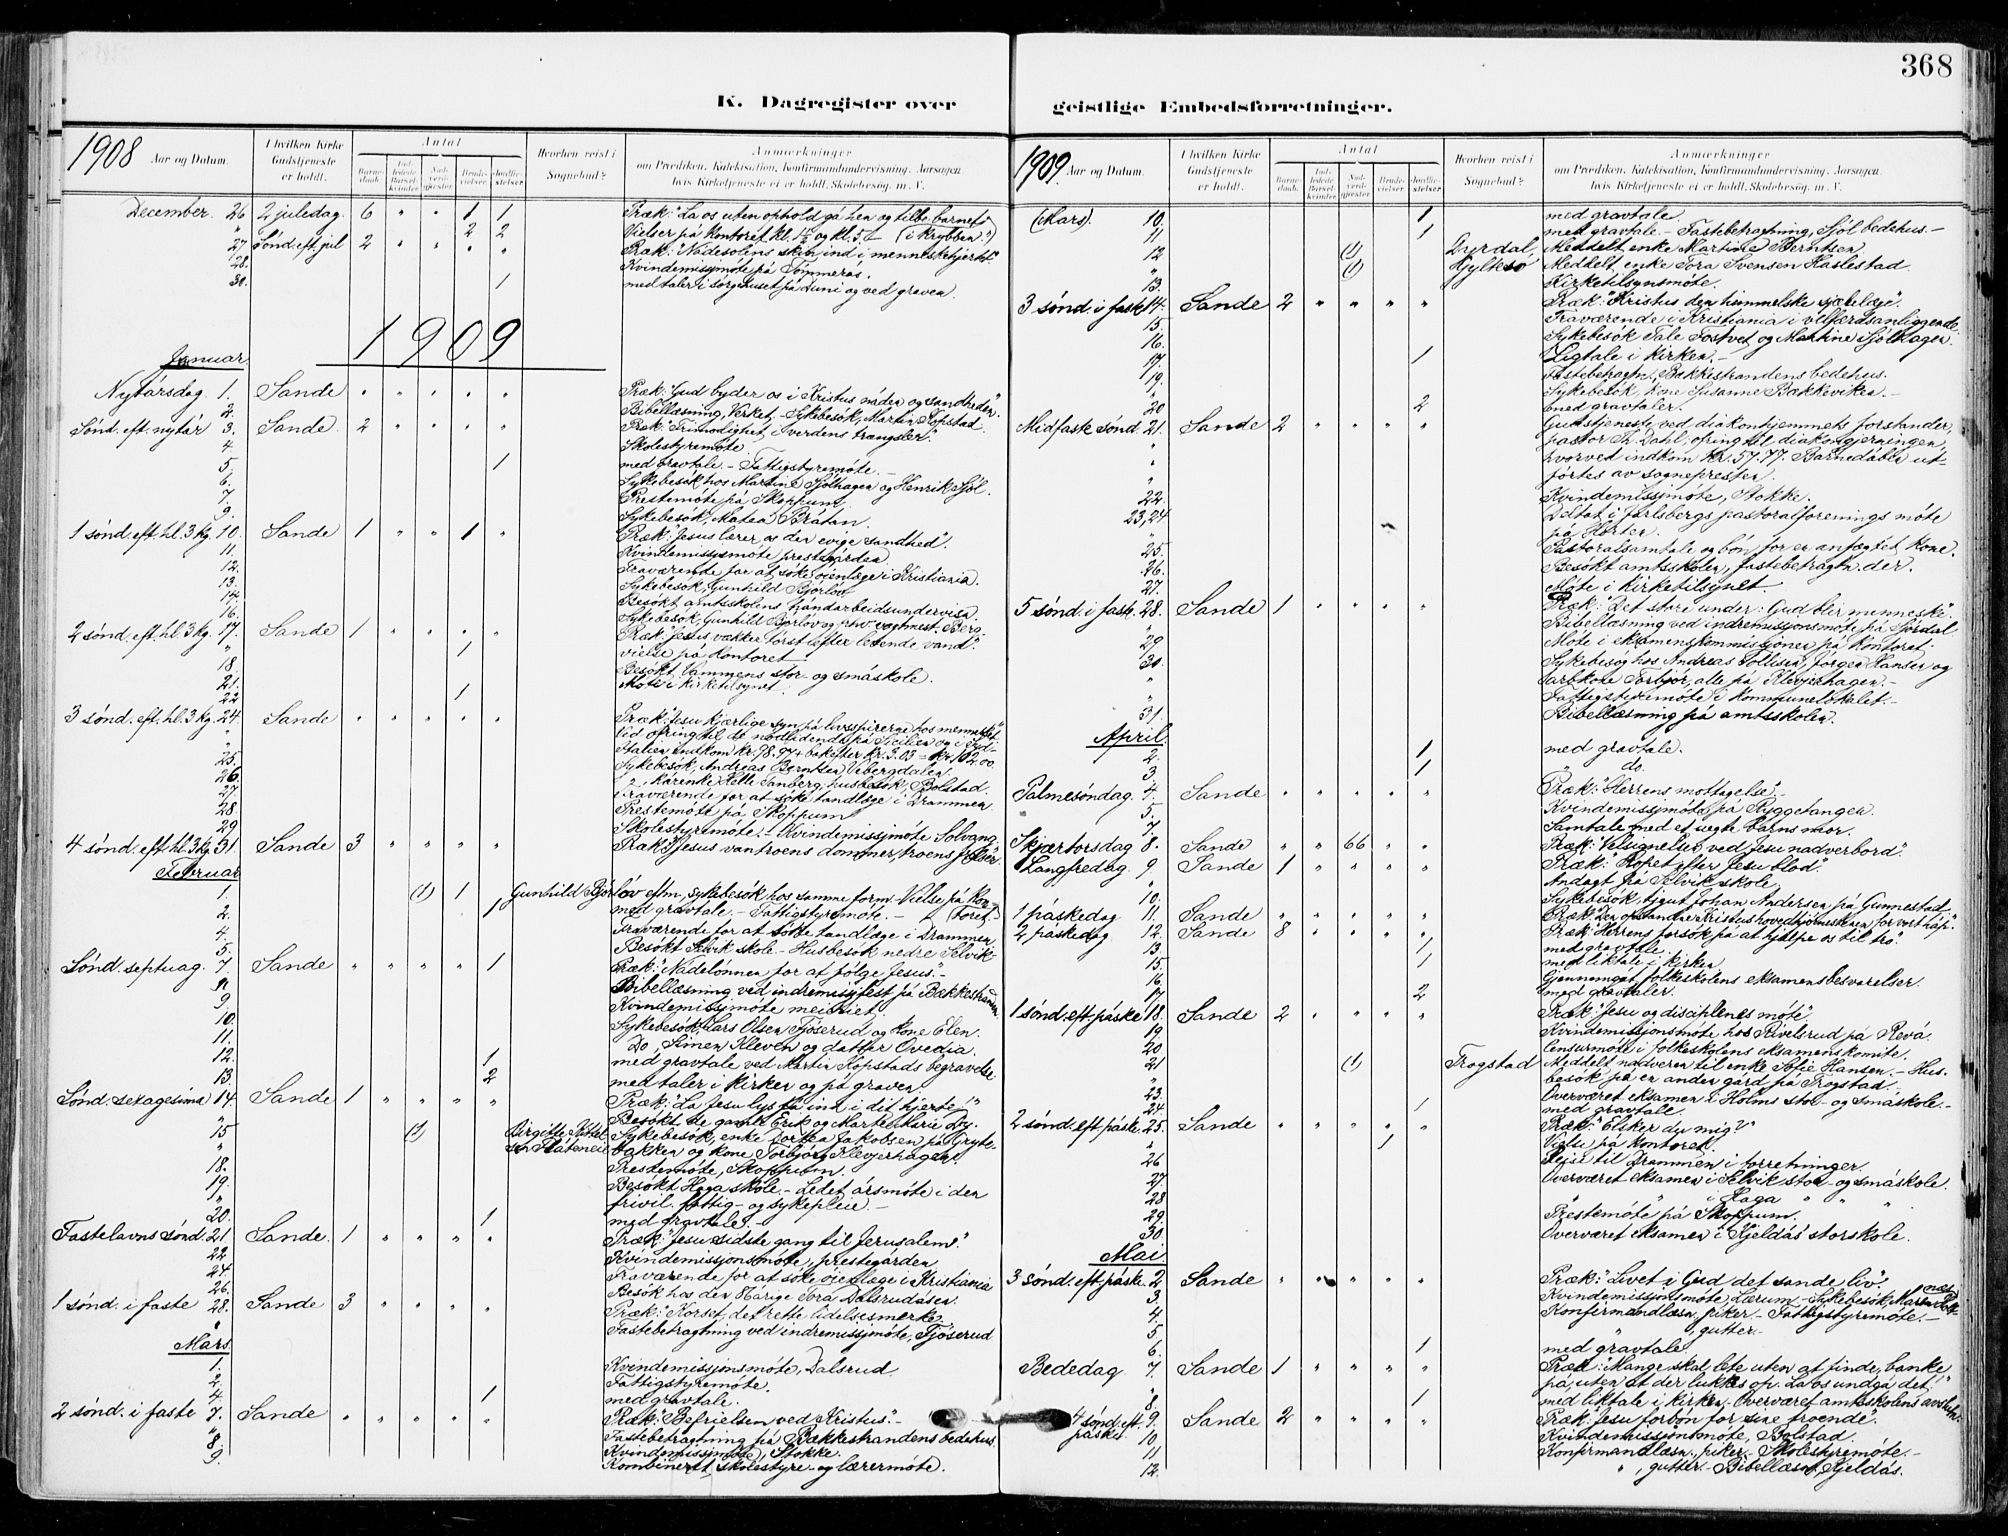 368
K. Dagregister over
1908 Aar og Datum.
I hvilken Kirke Gudstjeneste er holdt.
Antal
Barnedaab. Indledede Barselkvinder. Nadverdgjester Brudevielser. Jordfæstelser.
Hvorhen reist i Sognebud?
Anmærkninger
om Prædiken, Katekisation, Konfirmandundervisning, Aarsagen, hvis Kirketjeneste ei er holdt, Skolebesøg m. V.
December. 26 2 juledag. 6 " " 1 1 Præk: "La os uten ophold gå hen og tilbe barnet
" 2 2 Vielser på kontoret kl. 1½ og kl. 5. (i krybben.")
27 Sønd. eft. jul 2 " " " " Præk: "Nådesolens skin ind i menneskehjertet."
28. Kvindemissjmøte på Tømmerås.
30. 1 med taler i sørgehuset på Luni og ved graven.
1909
Januar
Nytårsdag 1. Sande " " " " " Præk: "Gud byder os i Kristus nåden og sandheden."
2. Bibellæsning, Verket. - Sykebesøk, Martin Kopstad.
Sønd. eft. nytår 3. Sande. 2 " " " " Præk: "Frimodighet i verdens trængsler."
4. Skolestyremøte.
5. 1 med gravtale. - Fattigstyremøte. -
6. Sykebesøk hos Martine Sjølhagen og Henrik Sjøl.
7. Prestemøte på Skoppum.
9. Sykebesøk, Matea Bråtan.
1 sønd. eft. hl. 3 kg. 10. Sande 1 " " 1 " Præk: "Jesus lærer os den evige sandhed".
11. Kvindemissjmøte prestegården
12. Fraværende for at søke øienlæge i Kristiania.
13. Sykebesøk, Gunhild Bjørløv
14. Besøkt amtsskolens håndarbeidsundervisn.
16. Sykebesøk, Gunhild Bjørløv og fhv. vagtmest. Berg.
2 sønd. eft. hl. 3 kg. 17. Sande 1 " " " " Præk: "Jesus vækker tørst efter levende vand."
" 1 vielse på kontoret
18. Besøkt Vammens stor- og småskole.
21. Møte i kirketilsynet.
22 1
3 sønd. eft. hl. 3 kg. 24. Sande " " " " " Præk: "Jesu kjærlige syn på livsspirerne hos mennesket"
" tid ofring til de nødlidende på Sicilien og i Syd-
25. Italien indkom kr. 98.97 + bakefter kr. 3.03 = kr. 102.00
26. Sykebesøk, Andreas Berntsen Vebergdalen
27. kårenke Helle Sanberg, husbesøk, Bolstad.
28. Fraværende for at søke tandlæge i Drammen
29 Prestemøte på Skoppum
Skolestyremøte. - Kvindemissjmøte Solvang
4 sønd. eft. hl. 3 kg. 31. Sande 3 " " " " Præk: "Jesus vantroens dommer, troens frelser"
Februar
1. (1) 1 Gunhild Bjørløv eftm, sykebesøk hos samme form. - Vielse på kon-
2. 1 med gravtale. - Fattigstyremøte. - (toret.)
4. Fraværende for at søke tandlæge i Drammen
5. Besøkt Selvik skole. - Husbesøk nedre Selvik
Sønd. septuag. 7 Sande " " " " 1 Præk: "Nådelønnen for at følge Jesus." -
8. Bibellæsning ved indremissjfest på Bækkestranden
9. Kvindemissjmøte meieriet.
10. Sykebesøk, Lars Olsen Fjøserud og kone Elen.
11. Do, Simen Kleven og datter Ovedia.
12. 1 med gravtale ved Martin Kopstads begravelse
13. 2 med taler i kirken og på graven
Sønd. sexagesima 14. Sande 1 " " " " Præk: "La Jesu lys få ind i dit hjerte!"
" Besøkt de gamle Erik og Marte Marie Dy.
15 (1) Birgitte Kittel- Sykebesøk, enke Dorthea Jakobsen på Gryte-
" bakken og kone Torbjørg Klevjerhagen.
18. Prestemøte, Skoppum.
19. Besøkt Haga skole. - Ledet årsmøte i den
" frivil. fattig- og sykepleie. -
20. 1 med gravtale.
Fastelavns sønd. 21. Sande. 1 " " " " Præk: "Jesu sidste gang til Jerusalem."
22. Kvindemissjonsmøte, prestegården
24. Fraværende for at søke øienlæge i Kristiania
26. Besøk hos den 94årige Tora Dalsrudåsen.
1 sønd. i faste 28. Sande 3 " " " " Præk: "Korset, det rette lidelsesmerke."
" Fastebetragtning ved indremissjmøte, Fjøserud
Mars.
1. Kvindemissjonsmøte, Dalsrud.
2. Fattigstyremøte.
4 1 med gravtale.
2 sønd. i faste 7. Sande " " " " " Præk: "Befrielsen ved Kristus". -
" Fastebetragtning på Bækkestrandens bedehus.
8. Kvindemissjmøte, Stokke.
9. Kombineret skolestyre- og lærermøte.
geistlige Embedsforretninger.
1909. Aar og Datum.
I hvilken Kirke Gudstjeneste er holdt.
Antal
Barnedaab. Indledede Barselkvinder. Nadverdgjester Brudevielser. Jordfæstelser.
Hvorhen reist i Sognebud?
Anmærkninger
om Prædiken, Katekisation, Konfirmandundervisning, Aarsagen, hvis Kirketjeneste ei er holdt, Skolebesøg m. V.
(Mars). 10. 1 med gravtale.
11. 1 med gravtale. - Fastebetragtning, Sjøl bedehus. -
12. (1) Dyrdal, Meddelt enke Martine Berntsen
" (1) Kjeltesø Meddelt enke Tora Svensen Haslestad.
13. Kirketilsynsmøte.
3 sønd. i faste 14. Sande 2 " " " " Præk: "Kristus den himmelske sjælelæge".
15. Fraværende i Kristiania i velfærdsanliggende.
16. Sykebesøk Tale Tostvet og Martine Sjølhagen.
17. 1 Ligtale i kirken. -
19. Fastebetragtn., Bækkestrandens bedehus.
" Sykebesøk, kone Susanne Bækkeviken. -
20 2 med gravtaler.
Midfaste sønd. 21. Sande 2 " " " " Gudstjeneste ved diakonhjemmets forstander,
" pastor Th. Dahl; ofring til diakongjerningen,
" hvorved indkom kr. 57.77. Barnedåben ut-
" førtes av sognepresten.
22. Kvindemissjmøte, Stokke.
23, 24 Deltat i Jarlsbergs pastoralforenings møte
" på Horten.
25. Pastoralsamtale og bøn for en anfægtet kone.
26. Besøkt amtsskolen, fastebetragtn. der.
27. Møte i kirketilsynet.
5 sønd. i faste. 28. Sande 1 " " " " Præk: "Det store under: Gud blir menneske"
" Bibellæsning ved indremissjonsmøte på Sjørdal
29 Møte i eksamenskommissjonen på kontoret.
30. Sykebesøg hos Andreas Tollisen, Jørgen Hansen og
" arbkone Torbjør, alle på Klevjerhagen. -
" Fattigstyremøte i kommunelokalet. -
31. Bibellæsning på amtsskolen.
April.
2. 1 med gravtale.
3. 1 " do.
Palmesøndag. 4. Sande " " " " " Præk: "Herrens mottagelse". -
5. Kvindemissjmøte på Ryggetangen.
7. Samtale med et uegte barns mor.
Skjærtorsdag 8. Sande " " 66 " " Præk: "Velsignelsen ved Jesu nadverbord".
Langfredag. 9 Sande 1 " " " " Præk: "Ropet efter Jesu blod".
" Andagt på Selvik skole.
10. Sykebesøk, sygut Johan Andersen på Gunnestad
1 påskedag 11. Sande " " " " " Præk: "Den opstandne Kristus hovedhjørnestenen for vort håp".
2 påskedag 12. Sande 8 " " " " Præk: "Herrens forsøk på at hjælpe os til tro".
13. 1 med gravtale.
15. 1 med liktale i kirken
16. Gjennemgåt folkeskolens eksamensbesvarelser.
17 2 med gravtaler.
1 sønd. eft. påske 18. Sande 2 " " " " Præk: "Jesu og disciplenes møte".
19. Kvindemissjonsmøte hos Bivelsrud på Revå.
20. Censurmøte i folkeskolens eksamenskomite.
21 (1) Trogstad Meddelt nadveren til enke Sofie Hansen. - Hus-
" besøk på en anden gård på Trogstad. -
23. Overværet eksamen i Holms stor- og småskole. -
24. 1 med gravtale.
2 sønd. eft. påske. 25. Sande " " " " " Præk: "Elsker du mig?"
" 1 Vielse på kontoret.
26 Reise til Drammen i forretninger.
27. Overværet eksamen i Selvik stor- og småskole.
28 " " i Haga " " "
29. Prestemøte på Skoppum.
30. Overværet eksamen i Kjeldås storskole.
Mai
3 sønd. eft. påske. 2 Sande " " " " " Præk: "Livet i Gud det sande liv".
3. Kvindemissjonsmøte Lærum. - Sykebesøk, Maren
4. Konfirmandlæsn., piker. - Fattigstyremøte. -
5 " , gutter. -
6. 1 med gravtale.
Bededag 7. Sande 1 " " " " Præk: "Mange skal lete uten at finde, banke
" på uten at der lukkes op. La os undgå det!"
8. 1 med liktale i kirken. Overværet amtsskolens avslutn.
4 sønd. eft. påske 9. Sande 2 " " " " Præk: "Jesu forbøn for sine troende".
10. Kvindemissjonsmøte, Bolstad.
11. Konfirmandlæsn., piker. - Skolestyremøte. -
12. " , gutter. - Bibellæsn. Kjeldås.